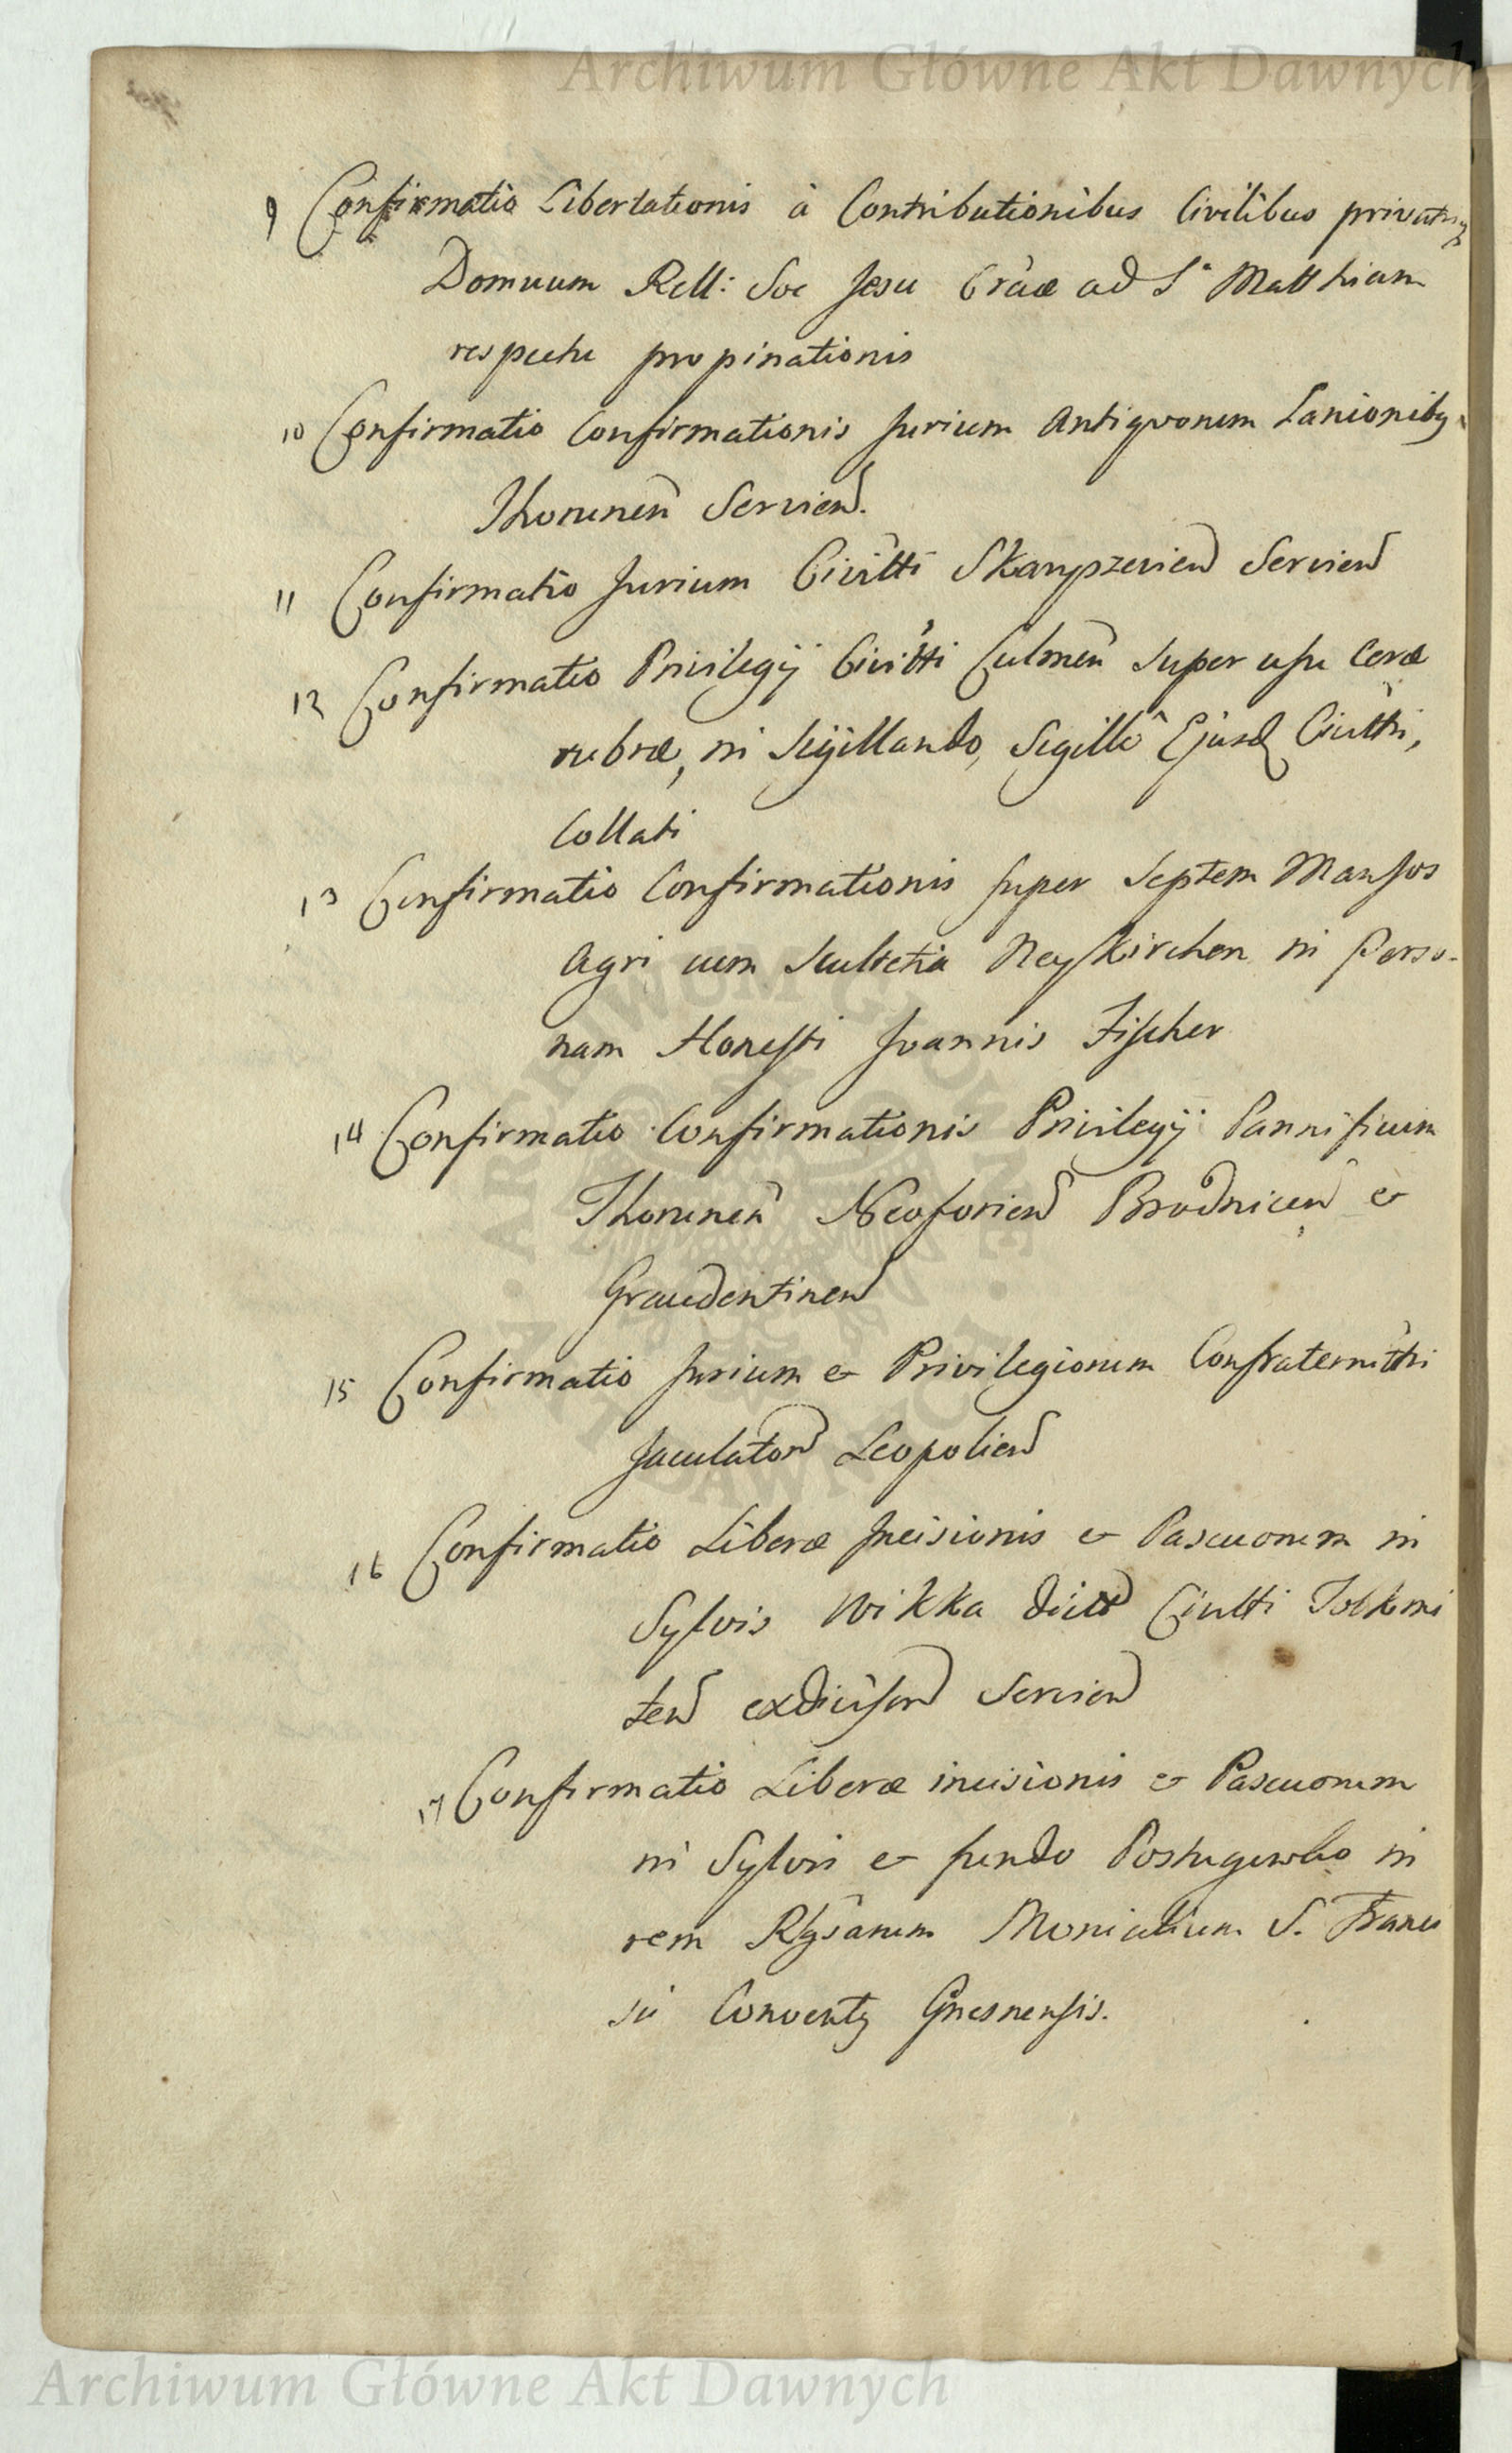 Archiwum Główne Akt Dawnych
9 Confirmatio Libertationis à Contributionibus Civilibus
Domuum Rell: Soc Jesu Crâæ ad S. Matthiam
respectu propinationis
10 Confirmatio Confirmationis Jurium Antiqvorum Lanionibq
Thorunen Servien.
11 Confirmatio Jurium Civitti Skarpzevien Servien
12 Confirmatio Privilegÿ Civitti Culmen super usu Ceræ
rubræ, in Sigillando, Sigillo Ejusd Civitti,
Collati
13 Confirmatio Confirmationis super Septem Mansos
Agri cum Scultetia Neykirchen in Perso-
nam Honesti Joannis Fischer
14 Confirmatio Confirmationis Privilegÿ Pannificum
Thorunen Neoforien Brodnicen et
Graudentinen
15 Confirmatio Jurium et Privilegiorum Confraternitti
Jaculator Leopolien
16 Confirmatio Liberæ Incisionis et Pascuorum in
Sylvis Wikka dict Civitti Tolkmi
ten Servien
17 Confirmatio Liberæ incisionis et Pascuorum
in Sylvis et fundo in
rem Monialium S. Franci
sci Conventq Gnesnensis.
ARCHIWUM GŁÓWNE AKT DAWNYCH
Archiwum Główne Akt Dawnych